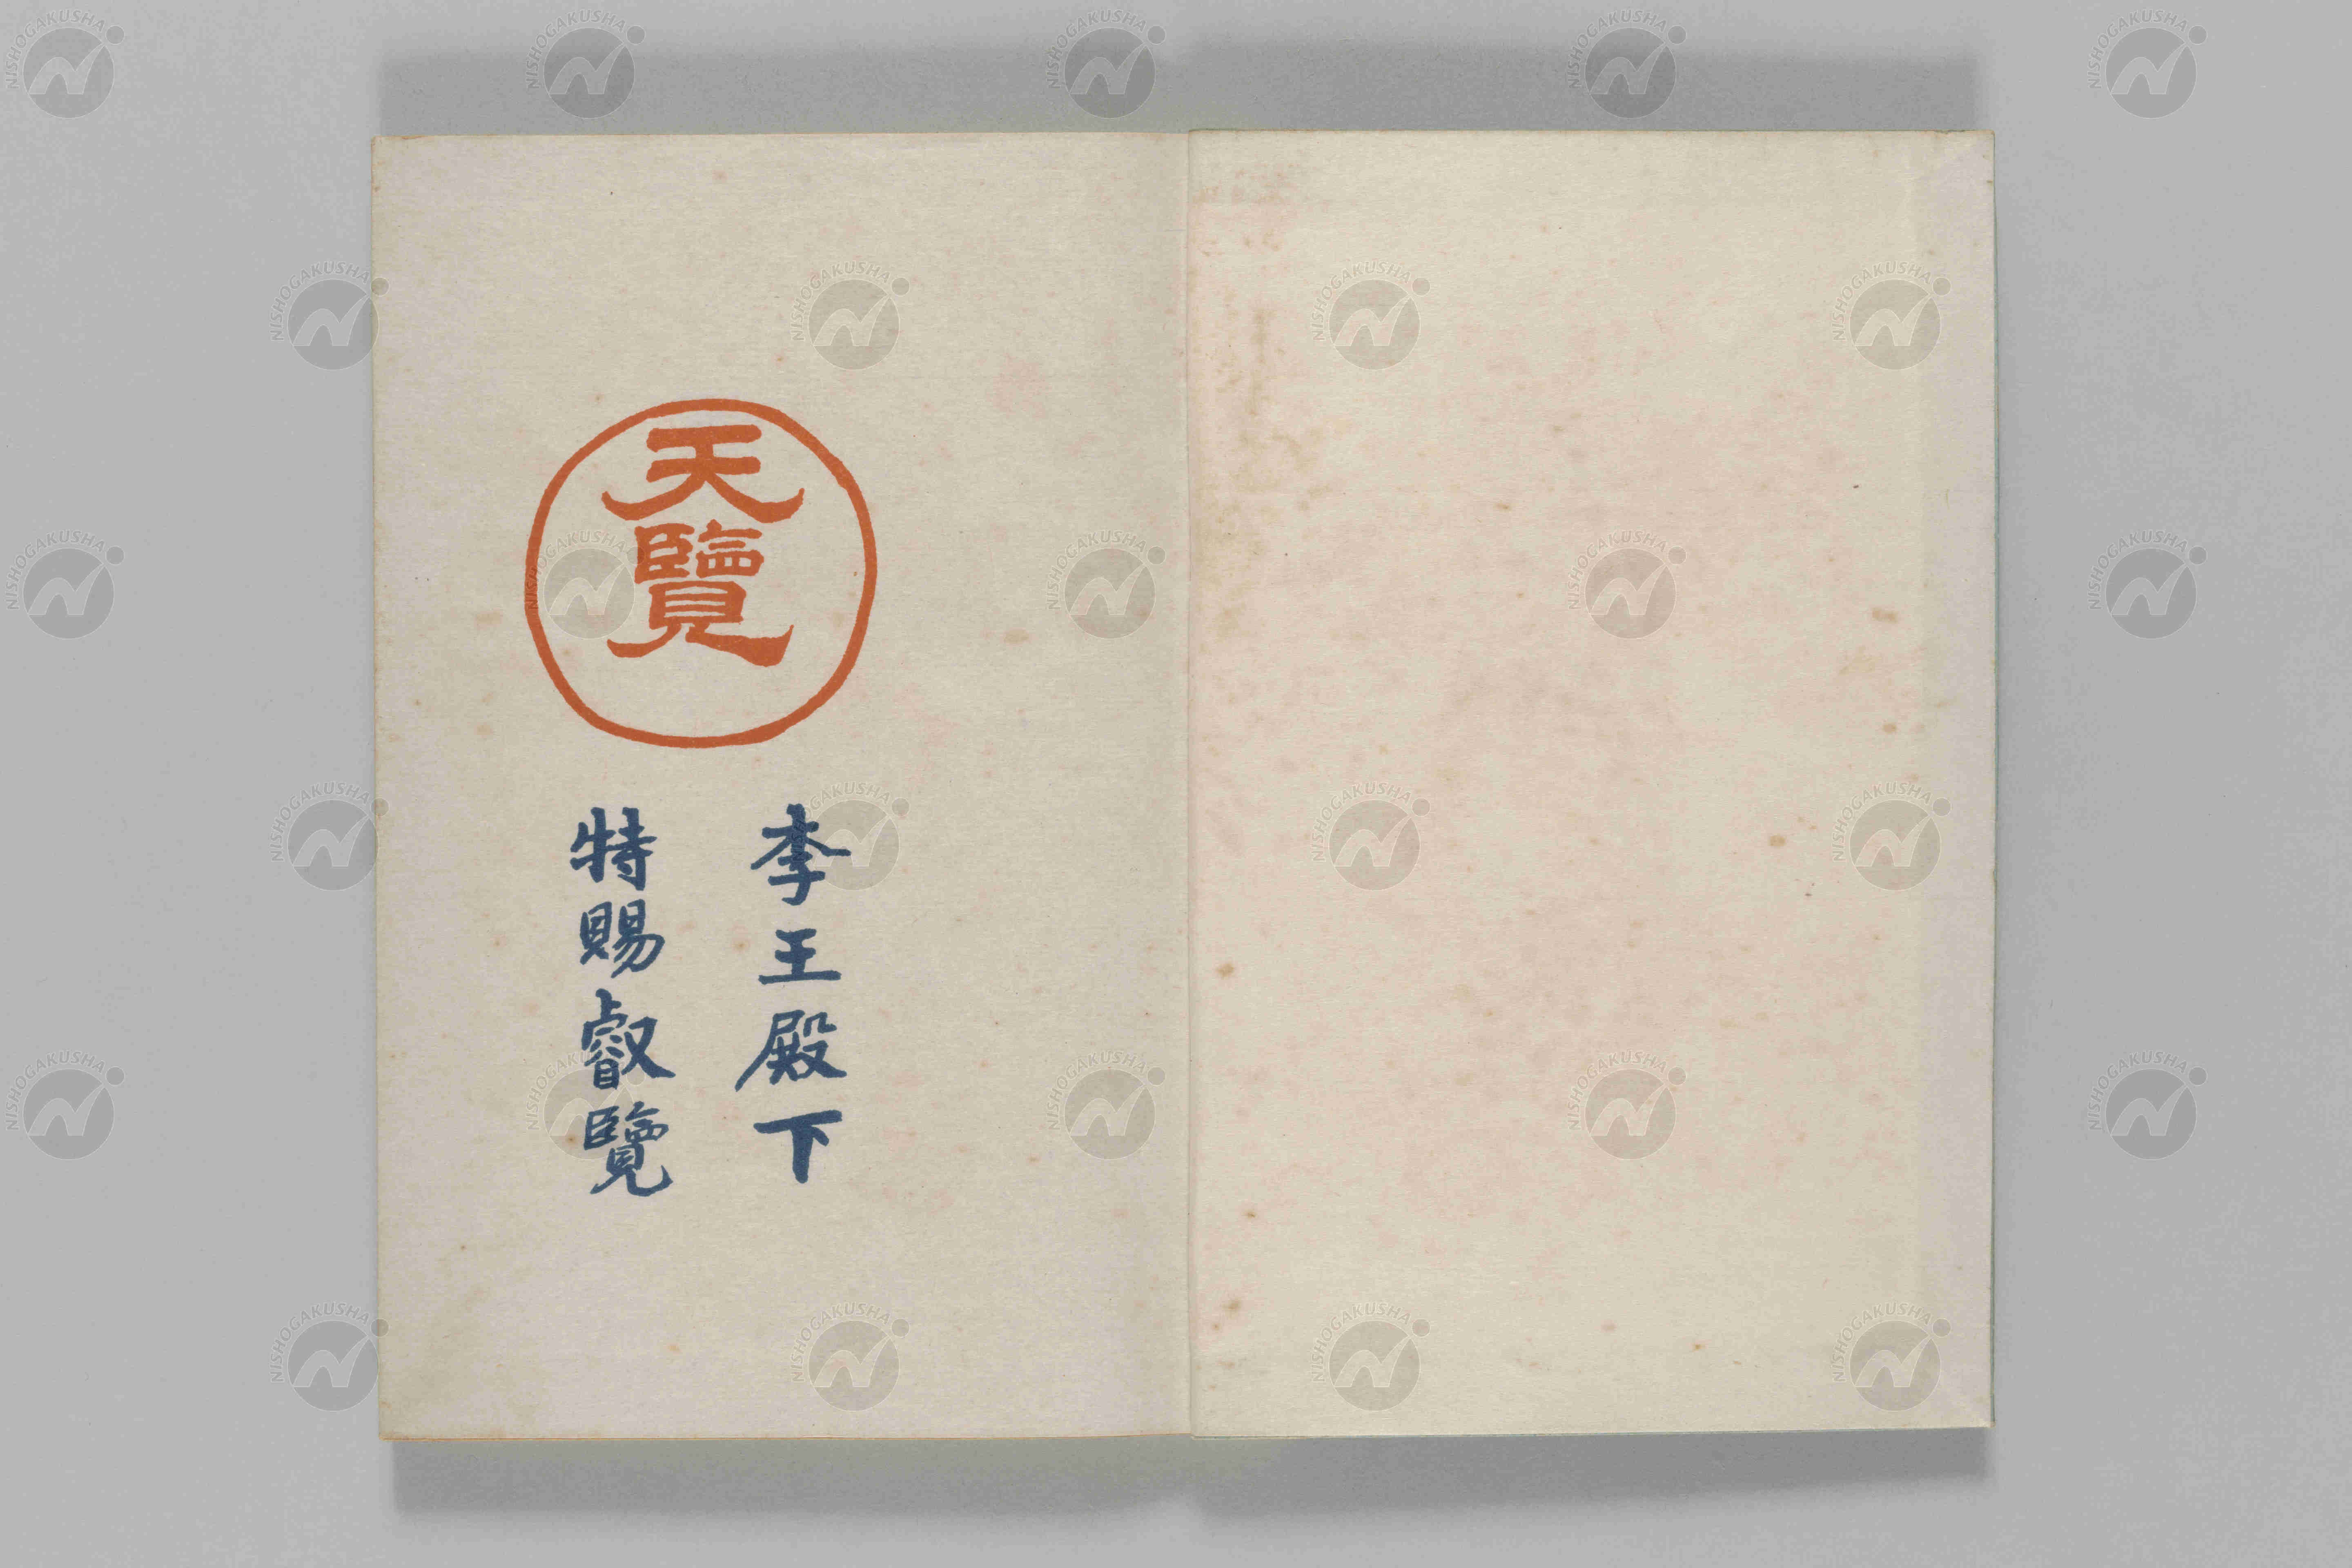 天覽
李王殿下
特賜叡覽
NISHOGAKUSHA